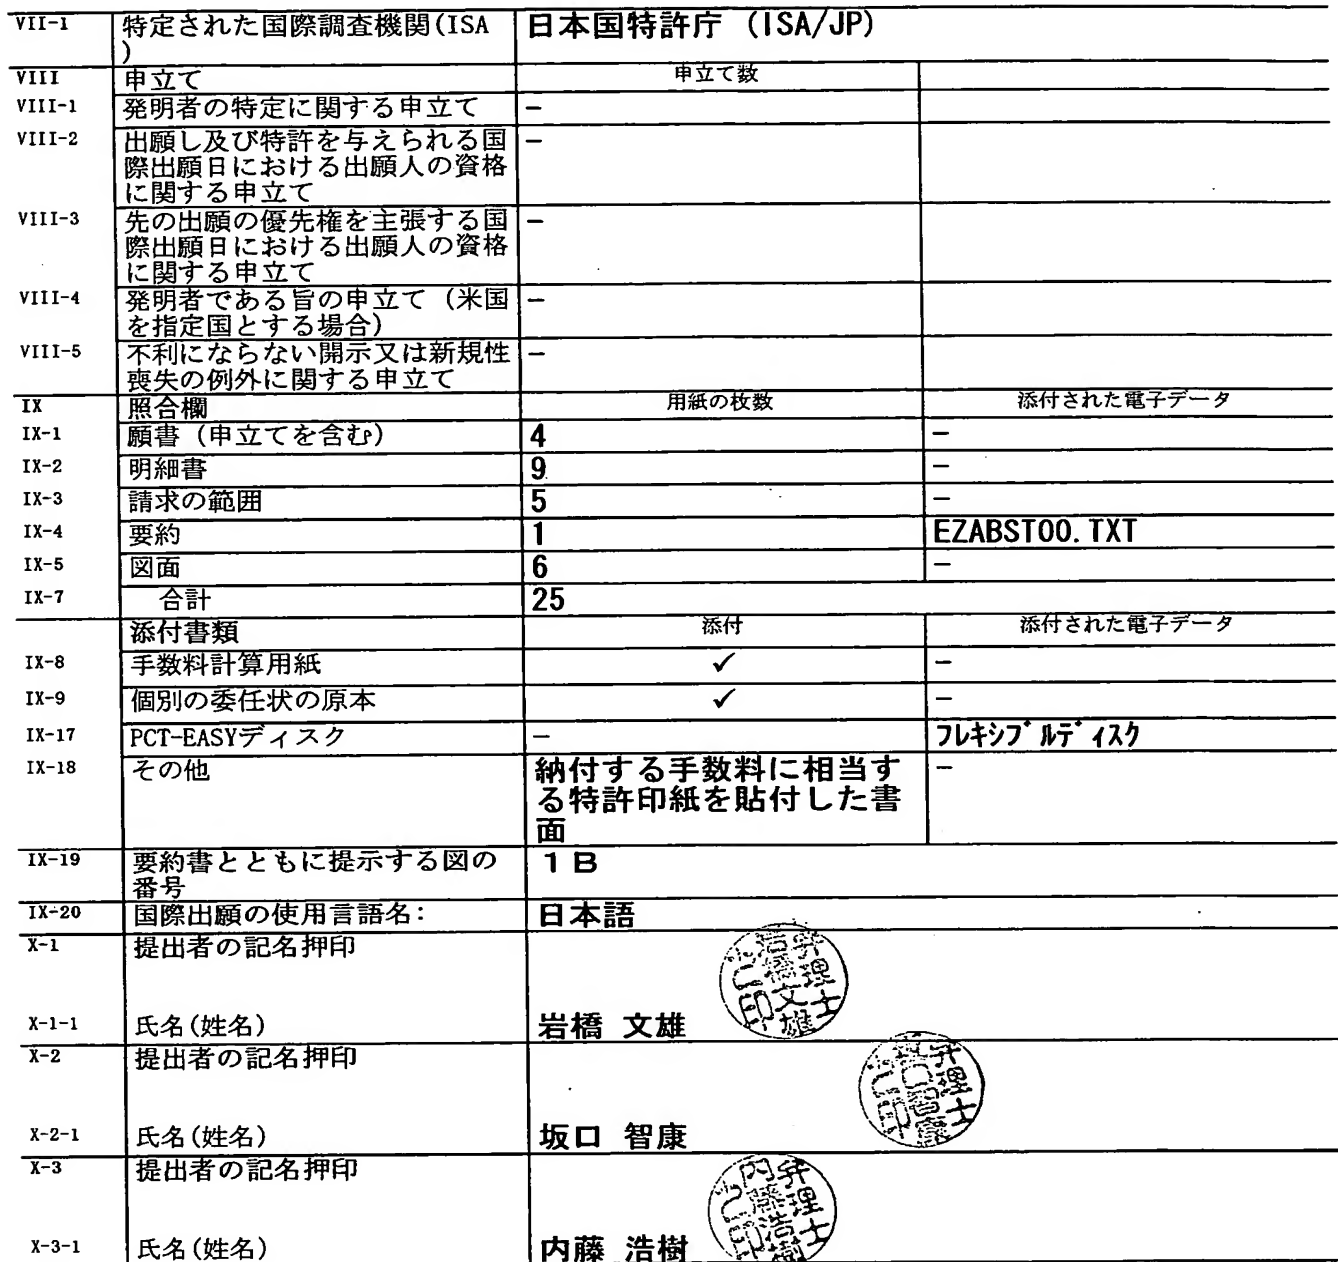 VII-1 特定された国際調査機関(ISA 日本国特許庁 (ISA/JP)
)
VIII 申立て 申立て数
VIII-1 発明者の特定に関する申立て -
VIII-2 出願し及び特許を与えられる国 -
際出願日における出願人の資格
に関する申立て
VIII-3 先の出願の優先権を主張する国 -
際出願日における出願人の資格
に関する申立て
VIII-4 発明者である旨の申立て (米国 -
を指定国とする場合)
VIII-5 不利にならない開示又は新規性 -
喪失の例外に関する申立て
IX 照合欄 用紙の枚数 添付された電子データ
IX-1 願書 (申立てを含む) 4 -
IX-2 明細書 9 -
IX-3 請求の範囲 5 -
IX-4 要約 1 EZABST00.TXT
IX-5 図面 6 -
IX-7 合計 25
添付書類 添付 添付された電子データ
IX-8 手数料計算用紙 ✓ -
IX-9 個別の委任状の原本 ✓ -
IX-17 PCT-EASYディスク - フレキシブルディスク
IX-18 その他 納付する手数料に相当す -
る特許印紙を貼付した書
面
IX-19 要約書とともに提示する図の 1B
番号
IX-20 国際出願の使用言語名: 日本語
X-1 提出者の記名押印
弁理士
岩橋文雄
之印
X-1-1 氏名(姓名) 岩橋 文雄
X-2 提出者の記名押印
弁理士
坂口智康
之印
X-2-1 氏名(姓名) 坂口 智康
X-3 提出者の記名押印
弁理士
内藤浩樹
之印
X-3-1 氏名(姓名) 内藤 浩樹